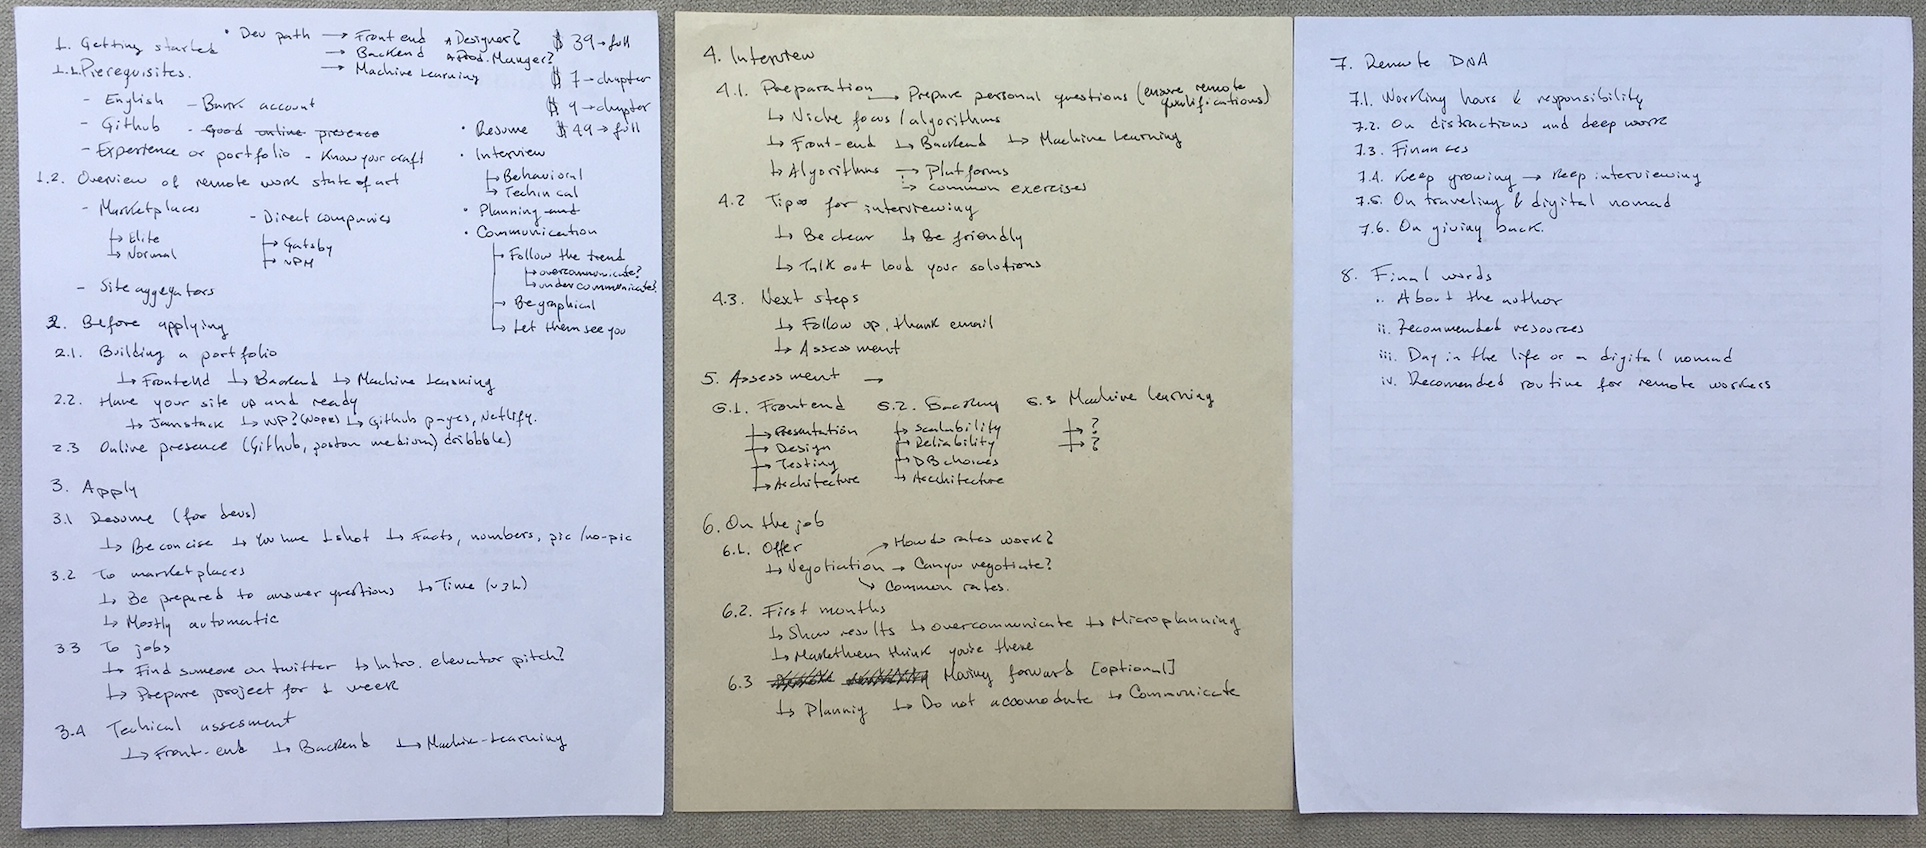 1. Getting started
• Dev path → Front end
→ Backend
→ Machine Learning
Designer?
Prod. Manger?
$ 39 → full
$ 7 → chapter
$ 9 → chapter
$ 49 → full
1.1. Prerequisites.
- English - Bank account
- Github - Good online presence
- Experience or portfolio - Know your craft
1.2. Overview of remote work state of art
- Marketplaces - Direct companies
↳ Elite ↳ Gatsby
↳ Normal ↳ NPM
- Site aggegators
• Resume
• Interview
↳ Behavioral
↳ Techincal
• Planning and
• Communication
→ Follow the trend
↳ overcommunicate?
↳ undercommunicate?
→ Be graphical
↳ Let them see you
2. Before applying
2.1. Building a portfolio
↳ Frontend ↳ Backend ↳ Machine Learning
2.2. Have your site up and ready
↳ Jamstack ↳ WP? (nope) ↳ Github pages, Netlify.
2.3 Online presence (Github, post on medium, dribbble)
3. Apply
3.1 Resume (for devs)
↳ Be concise ↳ You have 1 shot ↳ Facts, numbers, pic/no-pic
3.2 To marketplaces
↳ Be prepared to answer questions ↳ Time (~3h)
↳ Mostly automatic
3.3 To jobs
↳ Find someone on twitter ↳ Intro. elevator pitch?
↳ Prepare project for 1 week
3.4 Techical assesment
↳ Front-end ↳ Backend ↳ Machine-Learning
4. Interview
4.1. Preparation → Prepare personal questions (ensure remote qualifications)
↳ Niche focus / algorithms
↳ Front-end ↳ Backend ↳ Machine Learning
↳ Algorithms → Platforms
→ common exercises
4.2 Tips for interviewing
↳ Be clear ↳ Be friendly
↳ Talk out loud your solutions
4.3. Next steps
↳ Follow up, thank email
↳ Assessment
5. Assessment →
5.1. Frontend 5.2. Backend 5.3 Machine learning
↳ Presentation ↳ Scalability ↳ ?
↳ Design ↳ Reliability ↳ ?
↳ Testing ↳ DB choices
↳ Architecture ↳ Architecture
6. On the job
6.1. Offer
↳ Negotiation → How do rates work?
→ Can you negotiate?
→ Common rates.
6.2. First months
↳ Show results ↳ overcommunicate ↳ Microplanning
↳ Make them think you're there
6.3 Moving forward [optional]
↳ Plannig ↳ Do not accomodate ↳ Communicate
7. Remote DNA
7.1. Working hours & responsibility
7.2. On distractions and deep work
7.3. Finances
7.4. Keep growing → Keep interviewing
7.5. On traveling & digital nomad
7.6. On giving back.
8. Final words
i. About the author
ii. Recommended resources
iii. Day in the life of a digital nomad
iv. Recomended routine for remote workers